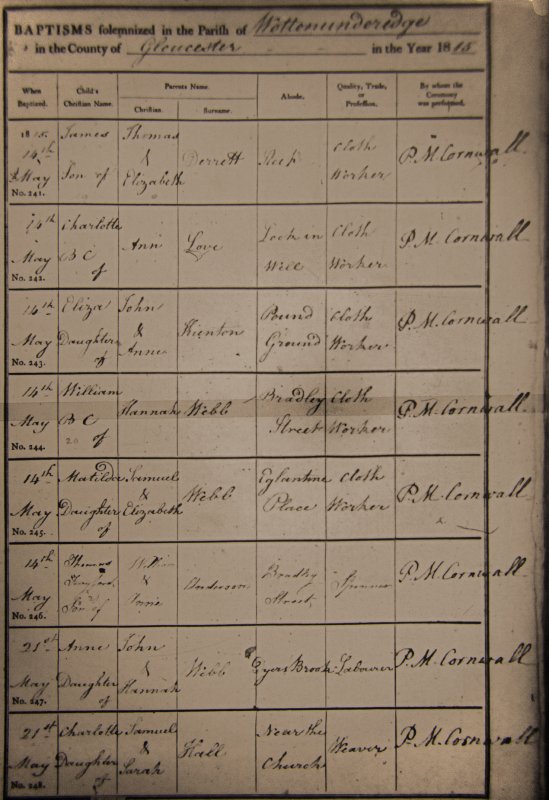 BAPTISMS solemnized in the Parish of Wottonunderedge
in the County of Gloucester in the Year 1815
When Baptized. Child's Christian Name. Parents Name. Abode. Quality, Trade, or Profession. By whom the Ceremony was performed.
Christian. Surname.
1815. James Thomas
14th & Derrett Cloth P. M. Cornwall
May Son of Elizabeth Worker
No. 241.
14th Charlotte Lock in Cloth P. M. Cornwall
May B C Ann Love Well Worker
of
No. 242.
14th Eliza John Pound Cloth P. M. Cornwall
May Daughter & Ground Worker
of Anne
No. 243.
14th William Bradley Cloth P. M. Cornwall
May B C Hannah Webb Street Worker
of
No. 244. 20
14th Matilda Samuel Eglantine Cloth P. M. Cornwall
May Daughter & Webb Place Worker
of Elizabeth
No. 245.
14th Thomas Bradley P. M. Cornwall
May & Street
Son of Anne
No. 246.
21st Anne John P. M. Cornwall
May Daughter & Webb Eyers Brook Labourer
of Hannah
No. 247.
21st Charlotte Samuel Near the P. M. Cornwall
May Daughter & Hall Church Weaver
of Sarah
No. 248.